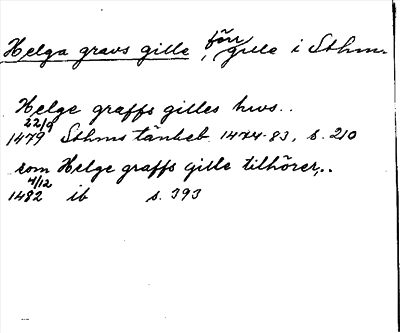 Helga gravs gille, förr gille i Sthm.
Helge graffs gilles hws..
22/9
1479 Sthms tänkeb. 1474-83, s. 210
som Helge graffs gille tilhörer,..
4/12
1482 ib s. 393